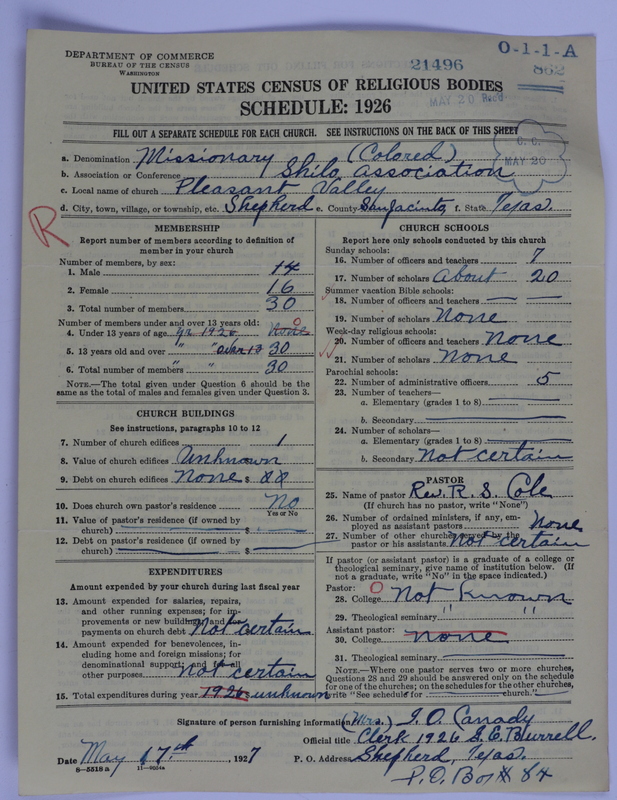 O-1-1-A
DEPARTMENT OF COMMERCE
BUREAU OF THE CENSUS
WASHINGTON
21496
862
UNITED STATES CENSUS OF RELIGIOUS BODIES
MAY 20 Rec'd
SCHEDULE: 1926
FILL OUT A SEPARATE SCHEDULE FOR EACH CHURCH. SEE INSTRUCTIONS ON THE BACK OF THIS SHEET
C. C.
MAY 20
a. Denomination Missionary (Colored)
b. Association or Conference Shilo Association
c. Local name of church Pleasant Valley
d. City, town, village, or township, etc. Shepherd e. County San Jacinto f. State Texas.
R
MEMBERSHIP
Report number of members according to definition of member in your church
Number of members, by sex:
1. Male 14
2. Female 16
3. Total number of members 30
Number of members under and over 13 years old:
4. Under 13 years of age yr 1926 None 0
5. 13 years old and over " " over 13 30
6. Total number of members " " 30
NOTE.—The total given under Question 6 should be the
same as the total of males and females given under Question 3.
CHURCH BUILDINGS
See instructions, paragraphs 10 to 12
7. Number of church edifices 1
8. Value of church edifices Unknown
9. Debt on church edifices None $
10. Does church own pastor's residence No
Yes or No
11. Value of pastor's residence (if owned by
church) $
12. Debt on pastor's residence (if owned by
church) $
EXPENDITURES
Amount expended by your church during last fiscal year
13. Amount expended for salaries, repairs,
and other running expenses; for im-
provements or new building; and for
payments on church debt Not certain
14. Amount expended for benevolences, in-
cluding home and foreign missions; for
denominational support; for all
other purposes not certain
15. Total expenditures during year 1926 $ unknown
CHURCH SCHOOLS
Report here only schools conducted by this church
Sunday schools:
16. Number of officers and teachers 7
17. Number of scholars About 20
Summer vacation Bible schools:
18. Number of officers and teachers
19. Number of scholars None
Week-day religious schools:
20. Number of officers and teachers None
21. Number of scholars None
Parochial schools:
22. Number of administrative officers 5
23. Number of teachers—
a. Elementary (grades 1 to 8)
b. Secondary
24. Number of scholars—
a. Elementary (grades 1 to 8)
b. Secondary Not certain
PASTOR
25. Name of pastor Rev. R. S. Cole
(If church has no pastor, write "None")
26. Number of ordained ministers, if any, em-
ployed as assistant pastors None
27. Number of other churches served by the
pastor or his assistants Not certain
If pastor (or assistant pastor) is a graduate of a college or
theological seminary, give name of institution below. (If
not a graduate, write "No" in the space indicated.)
Pastor: O
28. College Not Known
29. Theological seminary " "
Assistant pastor:
30. College none
31. Theological seminary
NOTE.—Where one pastor serves two or more churches,
Questions 28 and 29 should be answered only on the schedule
for one of the churches; on the schedules for the other churches,
write "See schedule for church."
Signature of person furnishing information (Mrs.) I. O. Canady
Official title Clerk 1926 S. E. Burrell.
Date May 17th, 1927 P. O. Address Shepherd, Texas.
8—5518 a 11—9224a
P.O. Box # 84